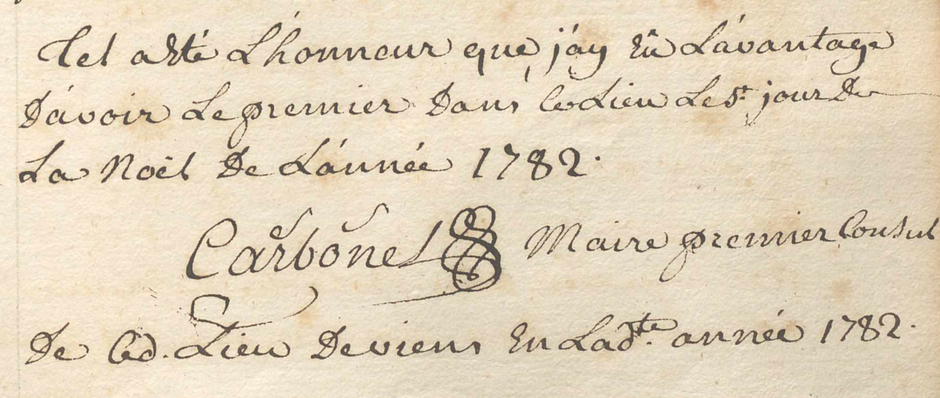 Tel a Eté L'honneur que j'ay Eû L'avantage
D'avoir Le premier Dans ce Lieu Le St. jour De
La Noël De L'année 1782.
Carbonel Maire premier Consul
De Ced. Lieu Deviens En Ladte. année 1782.